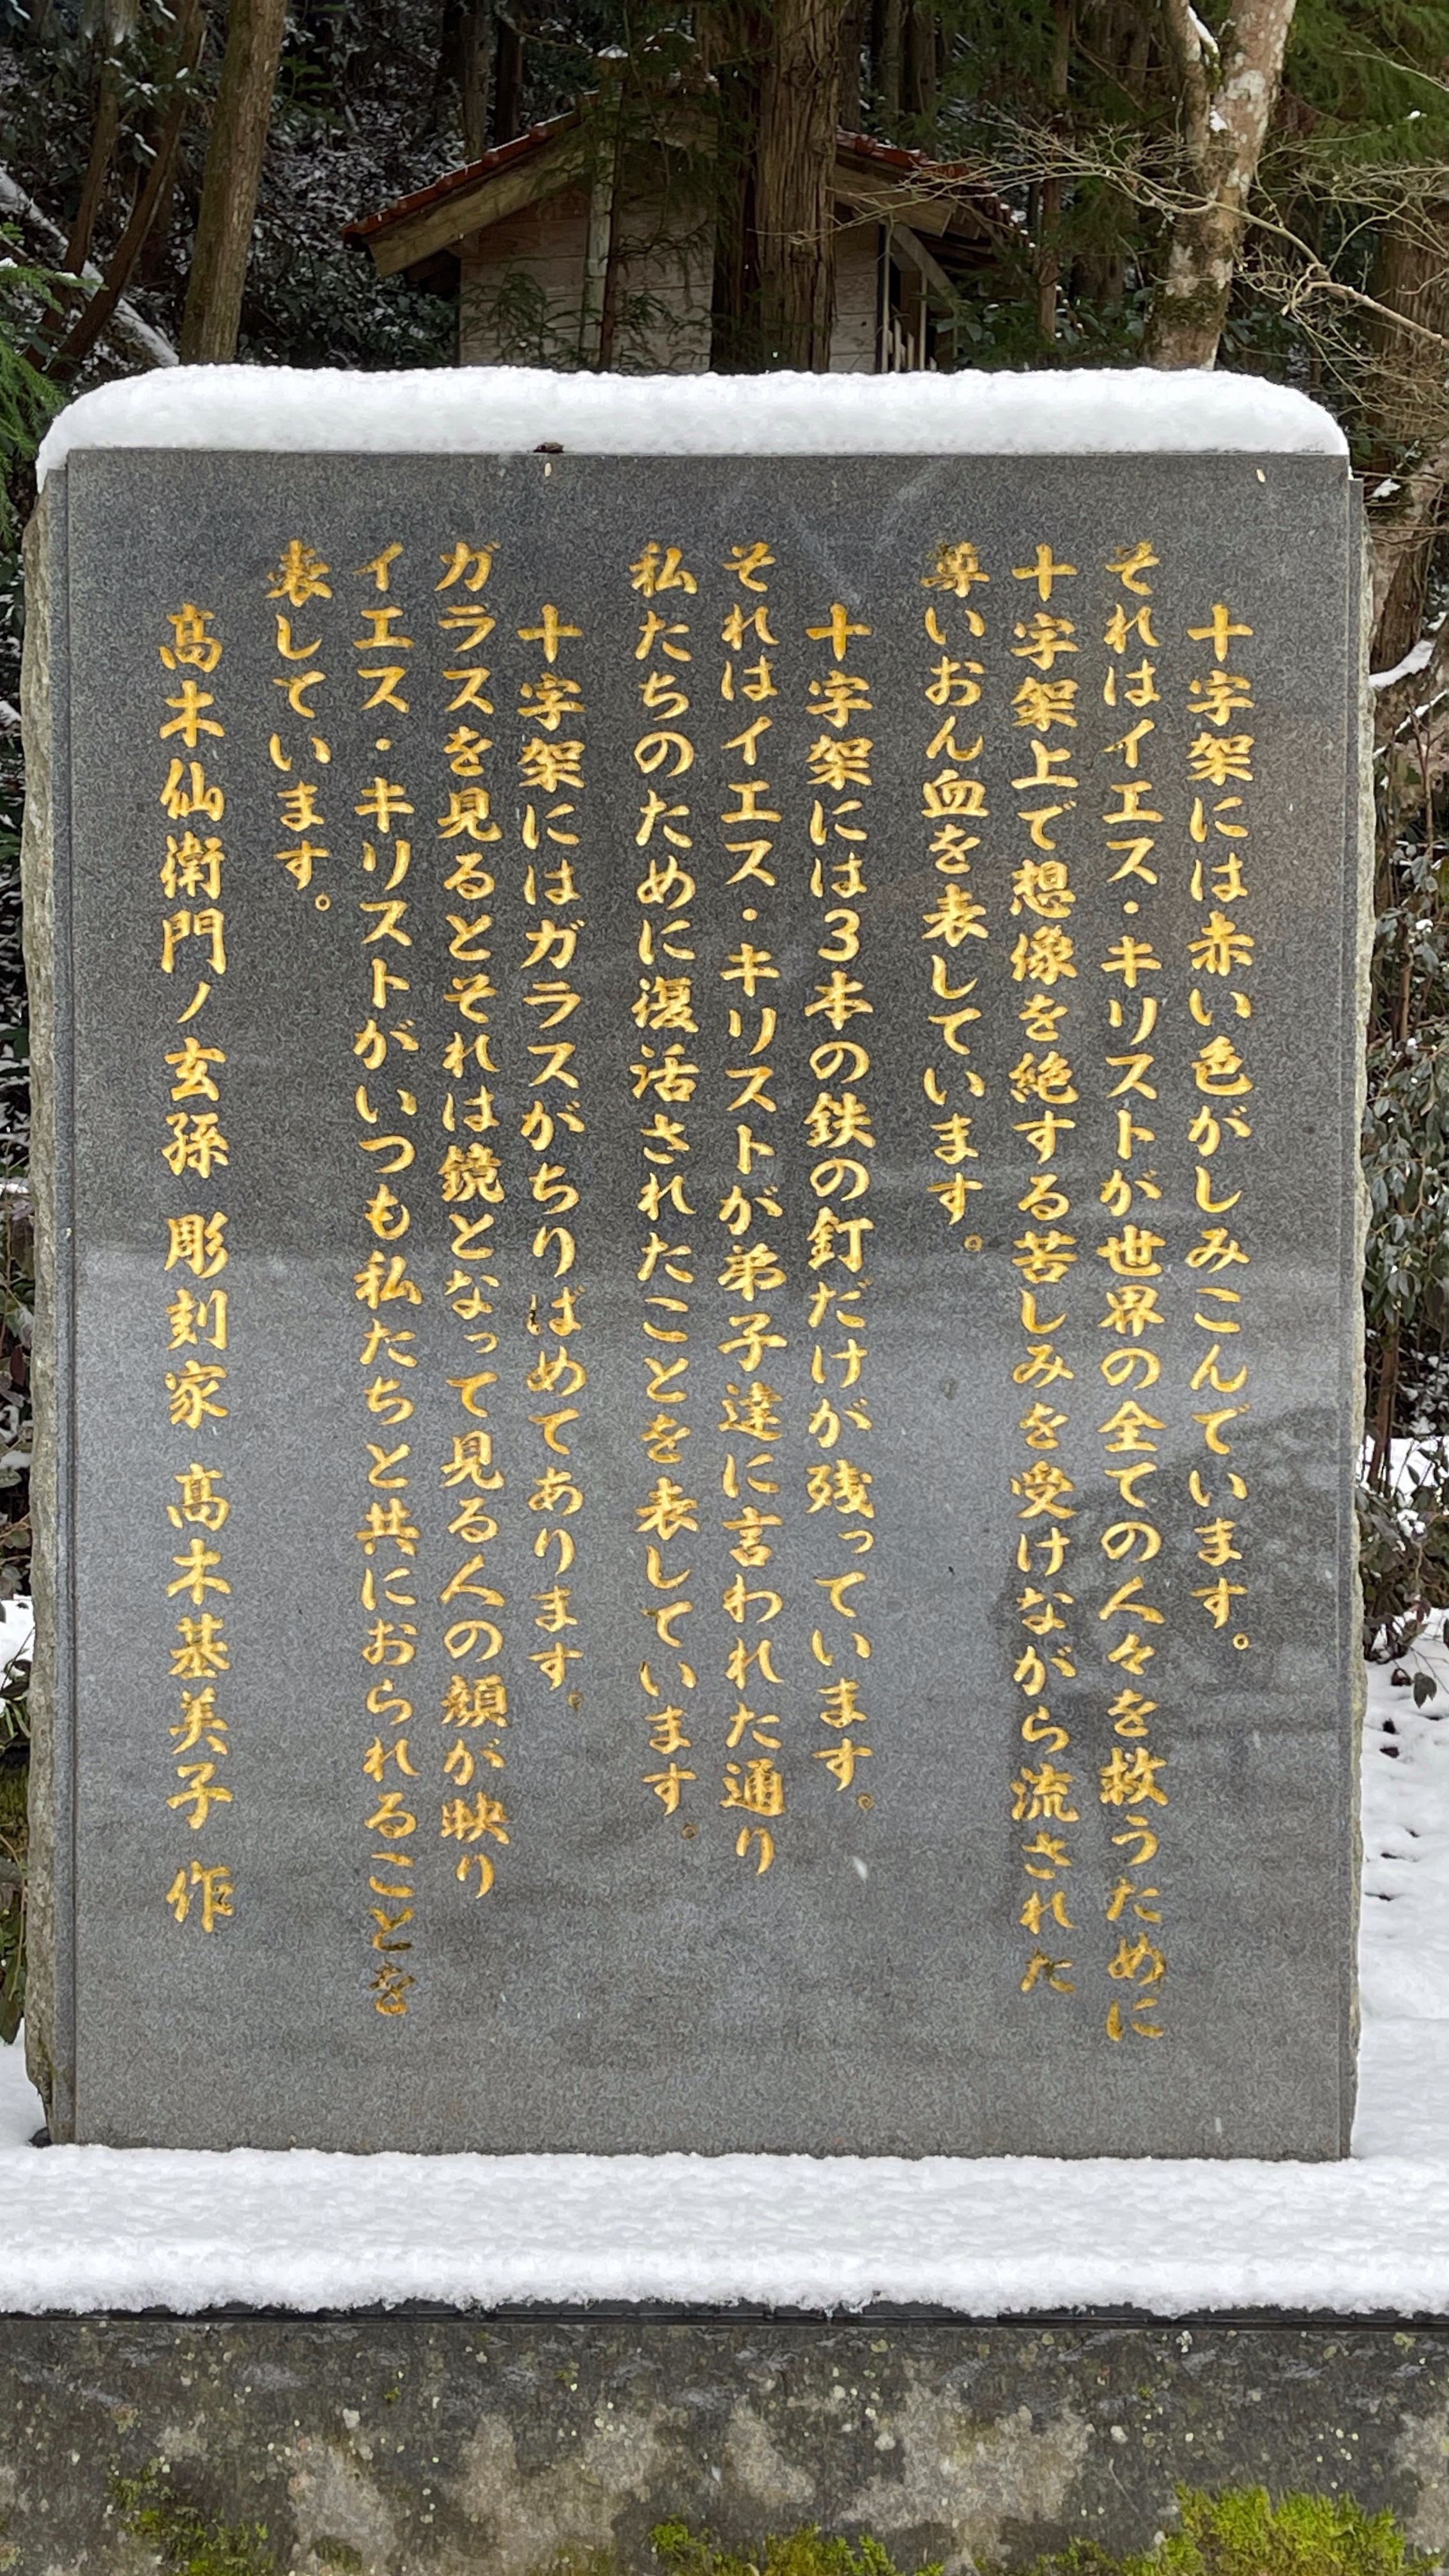 十字架には赤い色がしみこんでいます。
それはイエス・キリストが世界の全ての人々を救うために
十字架上で想像を絶する苦しみを受けながら流された
尊いおん血を表しています。
十字架には3本の鉄の釘だけが残っています。
それはイエス・キリストが弟子達に言われた通り
私たちのために復活されたことを表しています。
十字架にはガラスがちりばめてあります。
ガラスを見るとそれは鏡となって見る人の顔が映り
イエス・キリストがいつも私たちと共におられることを
表しています。
髙木仙衛門ノ玄孫 彫刻家 髙木基美子 作